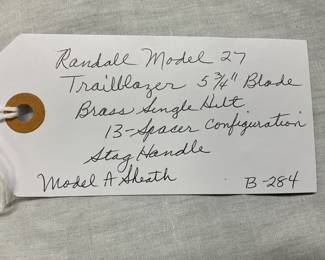 Randall Model 27
Trailblazer 5 3/4" Blade
Brass Single Hilt
13-Spacer Configuration
Stag Handle
Model A Sheath B-284